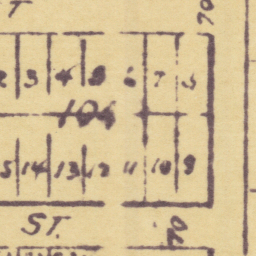 T
70
2 3 4 5 6 7 8
104
5 14 13 12 11 10 9
ST.
70